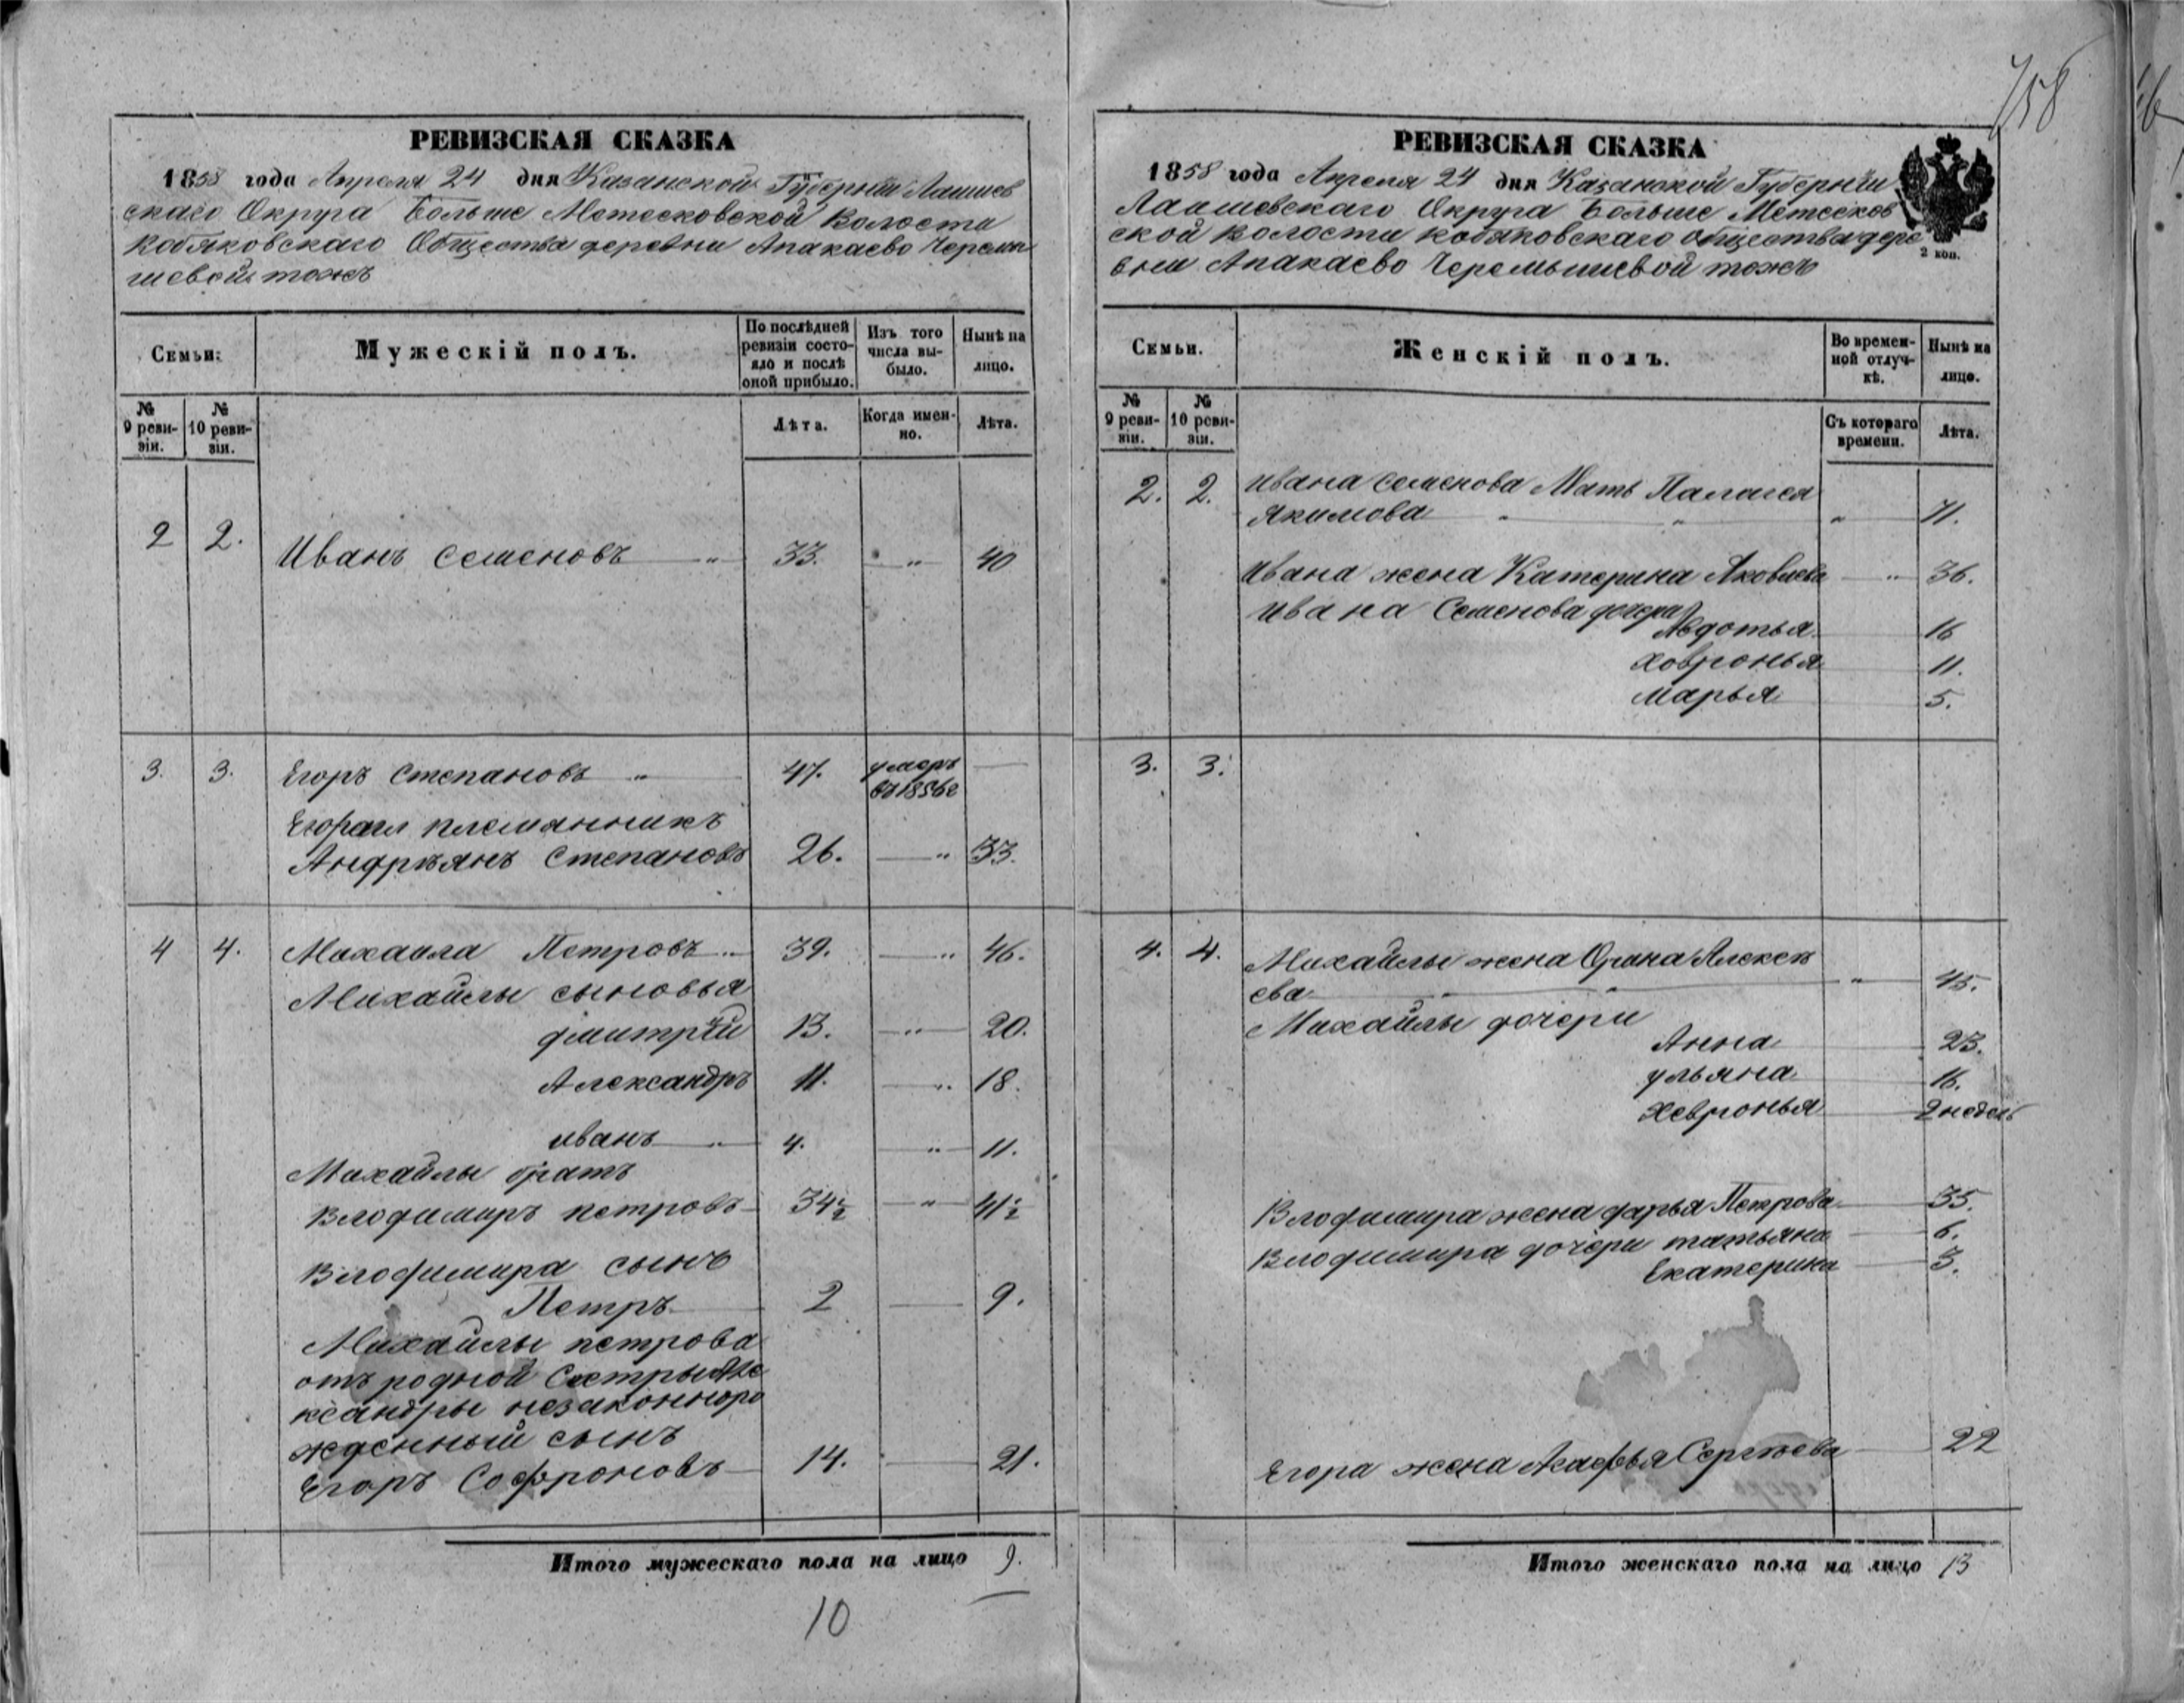 758
РЕВИЗСКАЯ СКАЗКА
1858 года Апреля 24 дня Казанской Губерніи Лаишев
скаго Округа Больше Метесковской Волости
Кобяковскаго Общества деревни Апакаево Черемы
шевой тожъ
Семьи: Мужескій полъ. По послѣдней ревизіи состояло и послѣ оной прибыло. Изъ того числа выбыло. Нынѣ на лицо.
№ 9 ревизіи. № 10 ревизіи. Лѣта. Когда именно. Лѣта.
2 2. Иванъ Семеновъ " 33. " 40
3. 3. Егоръ Степановъ " 47. умеръ
въ 1856 г
племянникъ
Андреянъ Степановъ 26. " 33.
4 4. Михаила Петровъ " 39. " 46.
Михайлы сыновья
Дмитрій 13. " 20.
Александръ 11. " 18.
Иванъ " 4. " 11.
Михайлы братъ
Влодимиръ Петровъ 34½ " 41½
Влодимира сынъ
Петръ 2 9.
Михайлы Петрова
отъ родной Сестры Але
ксандры незаконноро
жденный сынъ
Егоръ Софроновъ 14. 21.
Итого мужескаго пола на лицо 9.
10
РЕВИЗСКАЯ СКАЗКА
1858 года Апреля 24 дня Казанской Губерніи
Лаишевскаго Округа Больше Метесков
ской Волости Кобяковскаго Общества дере
вни Апакаево Черемышевой тожъ
2 коп.
Семьи. Женскій полъ. Во временной отлучкѣ. Нынѣ на лицо.
№ 9 ревизіи. № 10 ревизіи. Съ котораго времени. Лѣта.
2. 2. Ивана Семенова Мать Палагея
Якимова " " " 71.
Ивана жена Катерина Яковлева " 36.
Ивана Семенова дочери
Авдотья 16
Ховронья 11.
Марья 5.
3. 3.
4. 4. Михайлы жена Орина Алексѣ
ева " " " 45.
Михайлы дочери
Анна 23.
Ульяна 16.
Хевронья 2 недель
Влодимира жена Дарья Петрова 35.
Влодимира дочери Татьяна 6.
Екатерина 3.
Егора жена Агафья Сергѣева 22
Итого женскаго пола на лицо 13